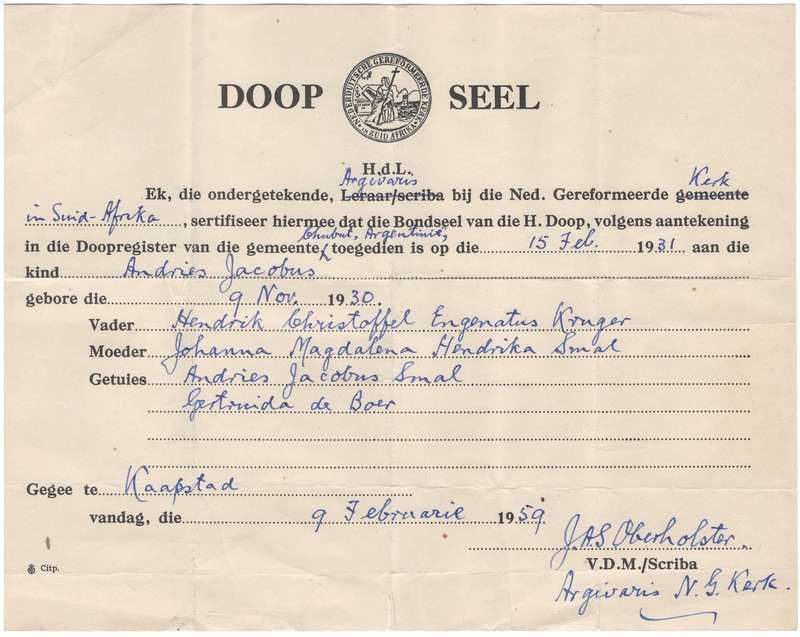 DOOP SEEL
NEDERDUITSCHE GEREFORMEERDE KERK IN ZUID AFRIKA
H.d.L.
Argivaris Kerk
Ek, die ondergetekende, Leraar/scriba bij die Ned. Gereformeerde gemeente
in Suid-Afrika, sertifiseer hiermee dat die Bondseel van die H. Doop, volgens aantekening
Chubut, Argentinië,
in die Doopregister van die gemeente toegedien is op die 15 Feb. 1931 aan die
kind Andries Jacobus
gebore die 9 Nov. 1930.
Vader Hendrik Christoffel Engenatus Kruger
Moeder Johanna Magdalena Hendrika Smal
Getuies Andries Jacobus Smal
Gertruida de Boer
Gegee te Kaapstad
vandag, die 9 Februarie 1959.
J.A.S. Oberholster.
V.D.M./Scriba
Citp.
Argivaris N.G. Kerk.